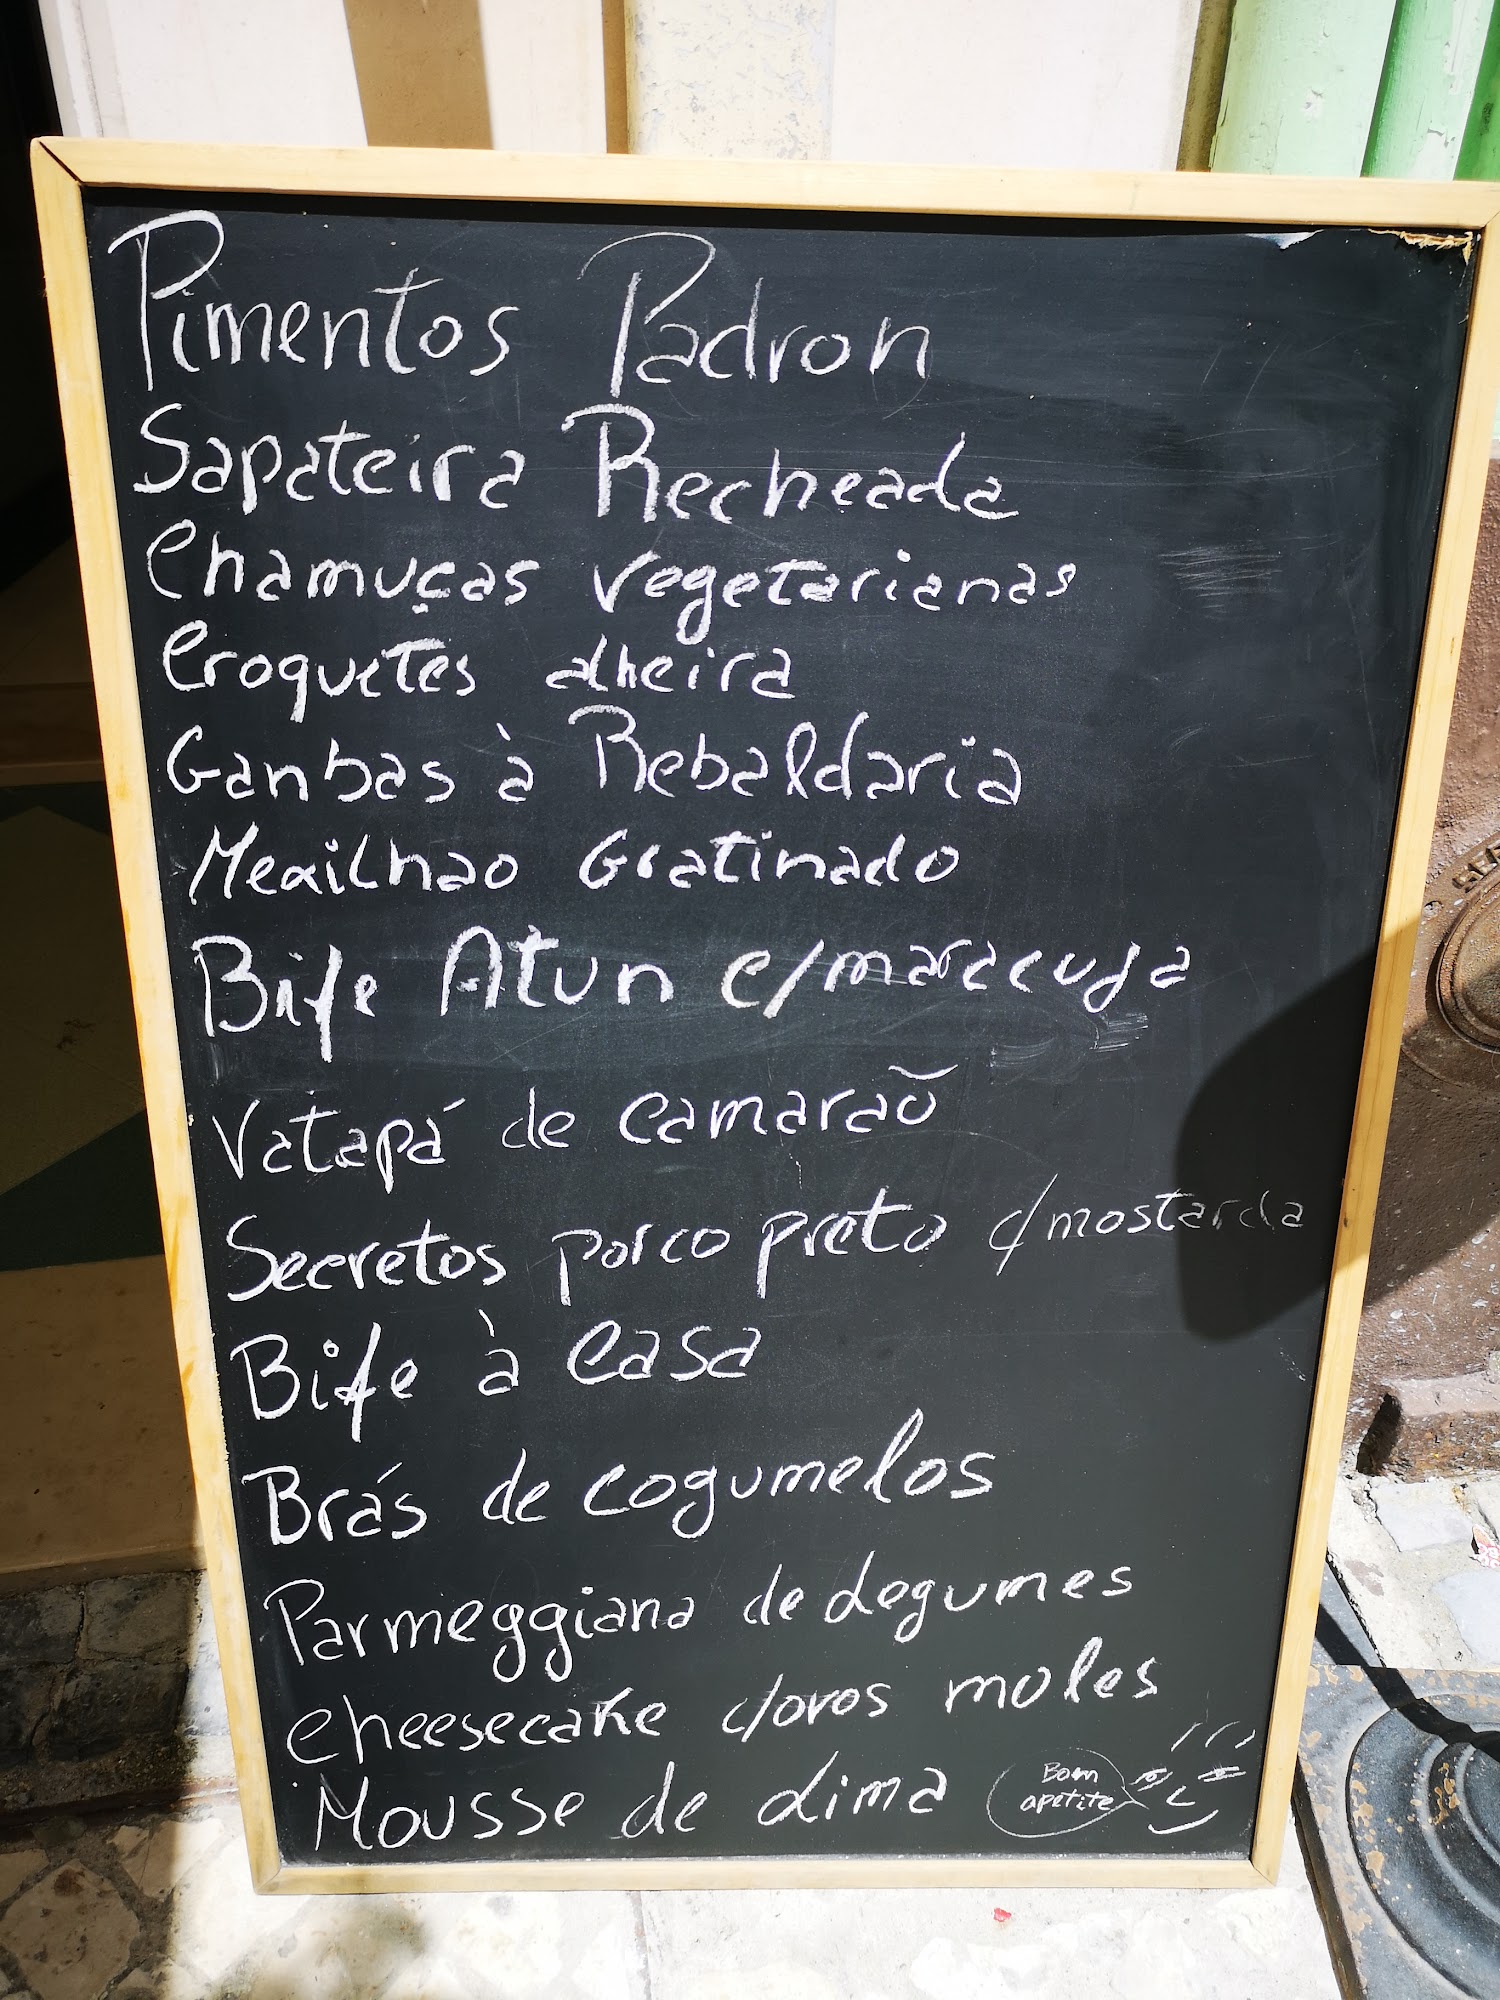 Pimentos Padron
Sapateira Recheada
Chamuças vegetarianas
Croquetes alheira
Ganbas à Rebaldaria
Mexilhao Gratinado
Bife Atun c/maracuja
Vatapá de camarão
Secretos porco preto c/mostarda
Bife à Casa
Brás de cogumelos
Parmeggiana de Legumes
Cheesecake c/ovos moles
Mousse de Lima
Bom
apetite